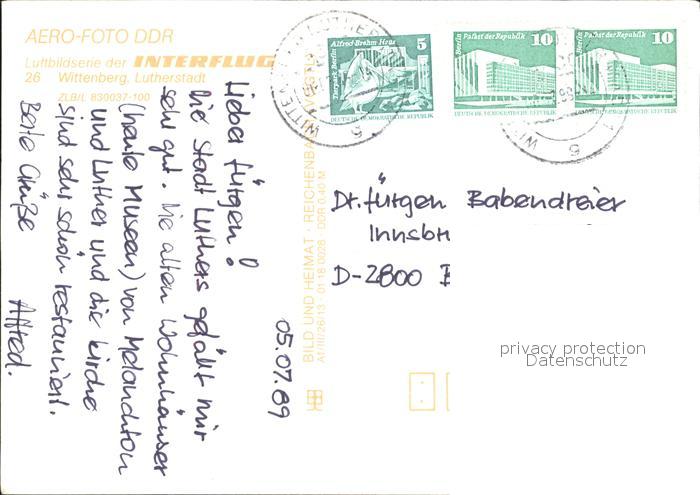 AERO-FOTO DDR
Luftbildserie der INTERFLUG
26 Wittenberg. Lutherstadt
ZLB/L 830037-100
Lieber Jürgen!
Die Stadt Luthers gefällt mir
sehr gut. Die alten Wohnhäuser
(heute Museen) von Melanchton
und Luther und die Kirche
sind sehr schön restauriert.
Beste Grüße
Alfred.
05.07.89
BILD UND HEIMAT · REICHENBA
A1/III/26/13 01 18 0026 DDR 0,40 M
Alfred-Brehm Haus 5
Tierpark Berlin
DEUTSCHE DEMOKRATISCHE REPUBLIK
Berlin Palast der Republik 10
DEUTSCHE DEMOKRATISCHE REPUBLIK
Berlin Palast der Republik 10
DEUTSCHE DEMOKRATISCHE REPUBLIK
Dr. Jürgen Babendreier
Innsbr
D-2800
privacy protection
Datenschutz